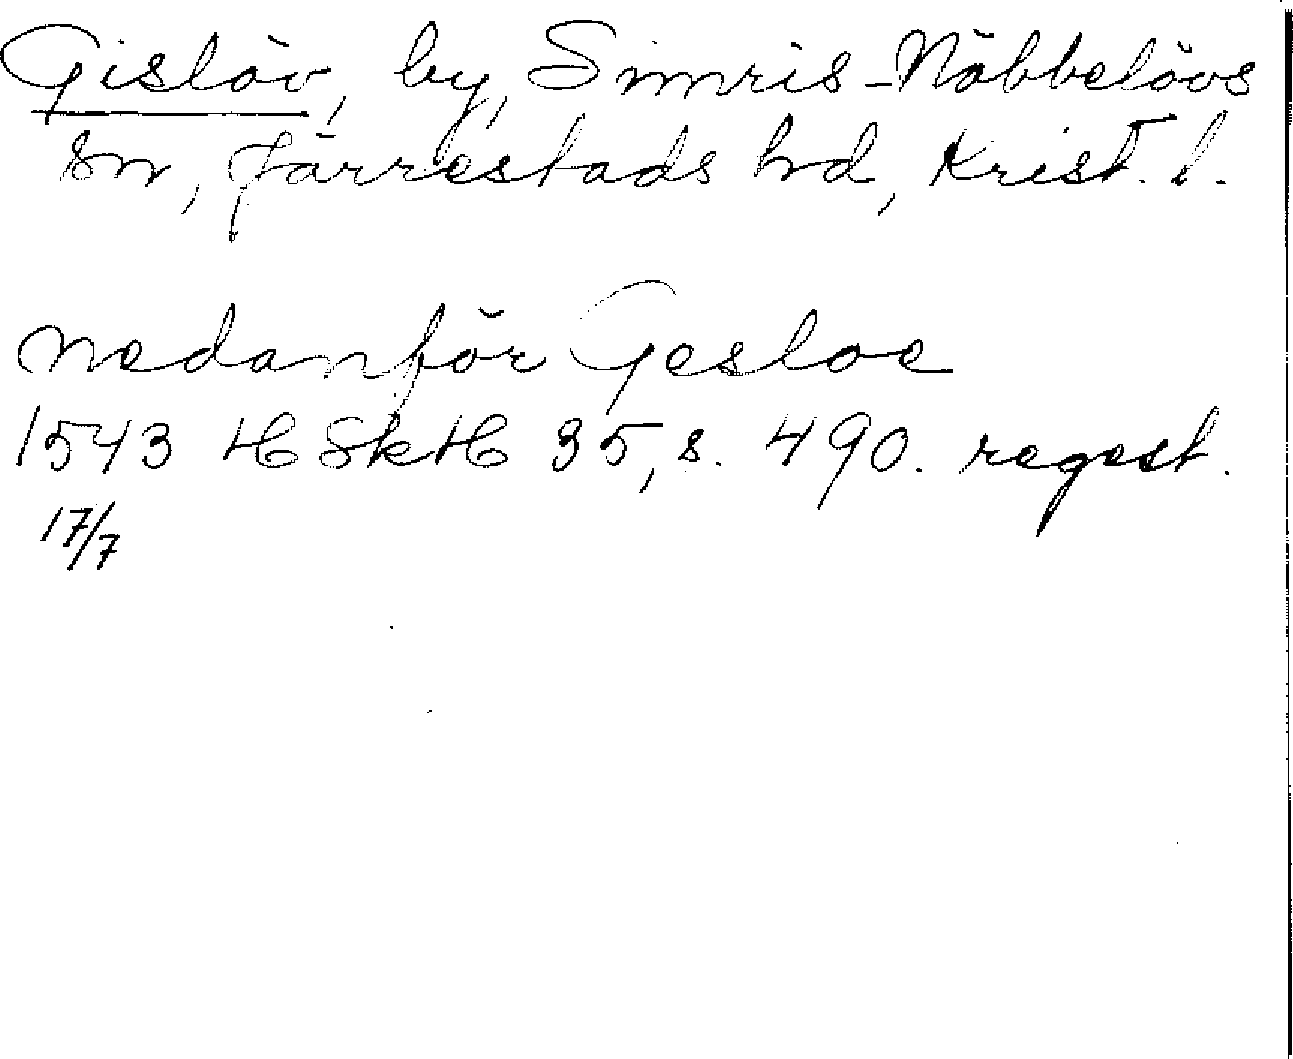 Gislöv, by, Simris-Nöbbelövs
sn, Järrestads hd, Krist. l.
nedanför Gesloe
1543 HSkH 35, s. 490. regest.
17/7